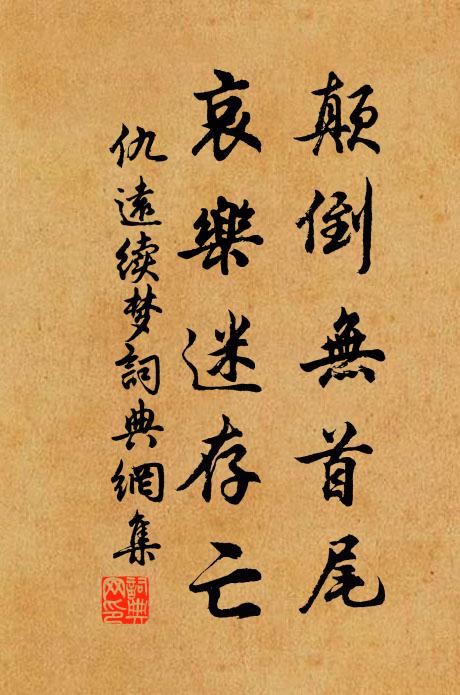 顛倒無首尾
哀樂迷存亡
仇遠续梦詞典網集
詞典网印